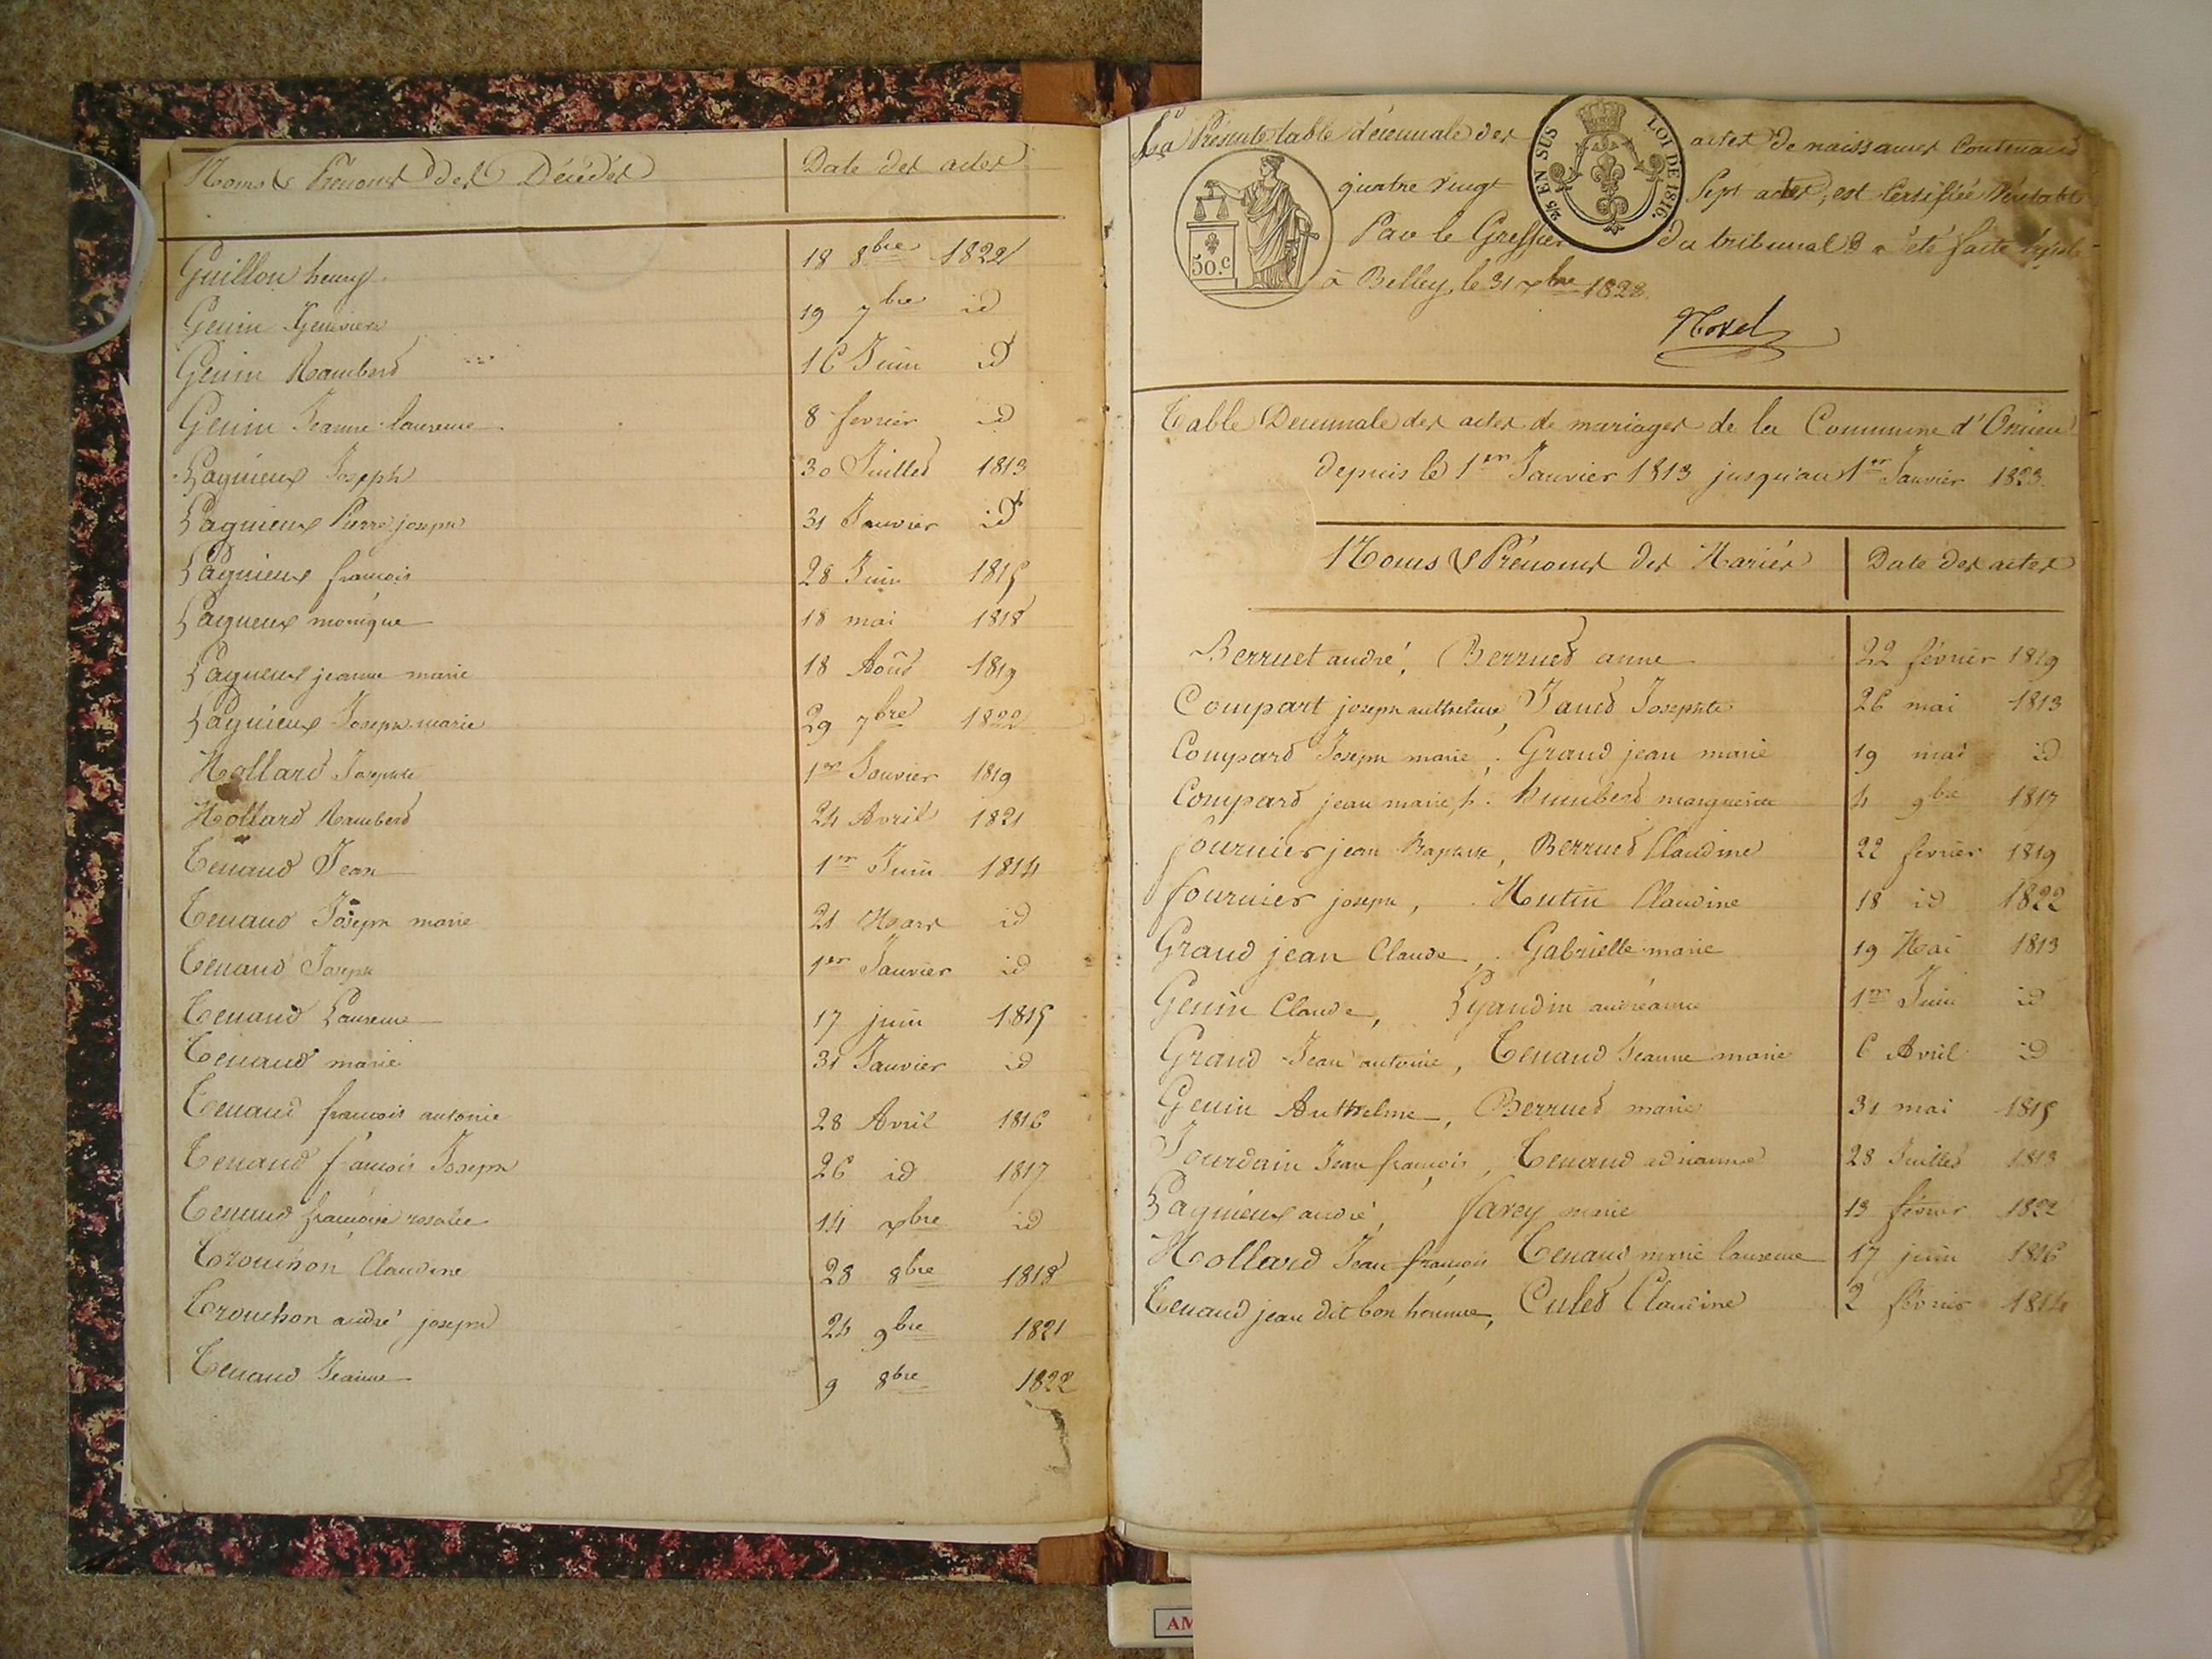 Noms & Prénoms des Décédés Date des actes
Guillon henry 18 8bre 1822
Genin Genevieve 19 7bre id
Genin Rambert 16 Juin id
Genin Jeanne laurence 8 fevrier id
Lagnieux Joseph 30 Juillet 1813
Lagnieux Pierre joseph 31 Janvier id
Lagnieux francois 28 Juin 1815
Lagnieux monique 18 mai 1818
Lagnieux jeanne marie 18 Août 1819
Lagnieux Joseph marie 29 7bre 1822
Mollard Josephte 1er Janvier 1819
Mollard Rambert 24 Avril 1821
Tenaud Jean 1er Juin 1814
Tenaud Joseph marie 21 Mars id
Tenaud Joseph 1er Janvier id
Tenaud Laurence 17 juin 1815
Tenaud marie 31 Janvier id
Tenaud francois antonie 28 Avril 1816
Tenaud francois Joseph 26 id 1817
Tenaud francoise rosalie 14 xbre id
Trouchon Claudine 28 8bre 1818
Trouchon andré joseph 24 9bre 1821
Tenaud Jeanne 9 8bre 1822
La Présente table décennale des actes de naissances Contenant
quatre vingt Sept actes, est Certifiée Véritable
Par le Greffier du tribunal & a été faite
à Belley, le 31 xbre 1828
2/5 EN SUS LOI DE 1816.
50.c
Table Decennale des actes de mariages de la Commune d'Onnieu
depuis le 1er Janvier 1813 jusqu'au 1er Janvier 1823.
Noms & Prénoms des Mariés Date des actes
Berruet andré, Berruet anne 22 février 1819
Compart joseph anthelme, Janet Josephte 26 mai 1813
Compard Joseph marie, Grand jean marie 19 mai id
Compard jean marie, h. humbert marguerite 4 9bre 1817
fournier jean Baptiste, Berruet Claudine 22 fevrier 1819
fournier joseph, Mutin Claudine 18 id 1822
Grand jean Claude, Gabrielle marie 19 Mai 1813
Genin Claude, Lyaudin 1er Juin id
Grand Jean antoine, Tenaud Jeanne marie 6 Avril id
Genin Anthelme, Berrued marie 31 mai 1815
Jourdain Jean françois, Tenaud adrianne 28 Juillet 1813
Lagnieux andré, favey marie 13 février 1822
Mollard Jean françois Tenaud marie laurence 17 juin 1816
Tenaud jean dit bon homme, Culet Claudine 2 février 1814
AM